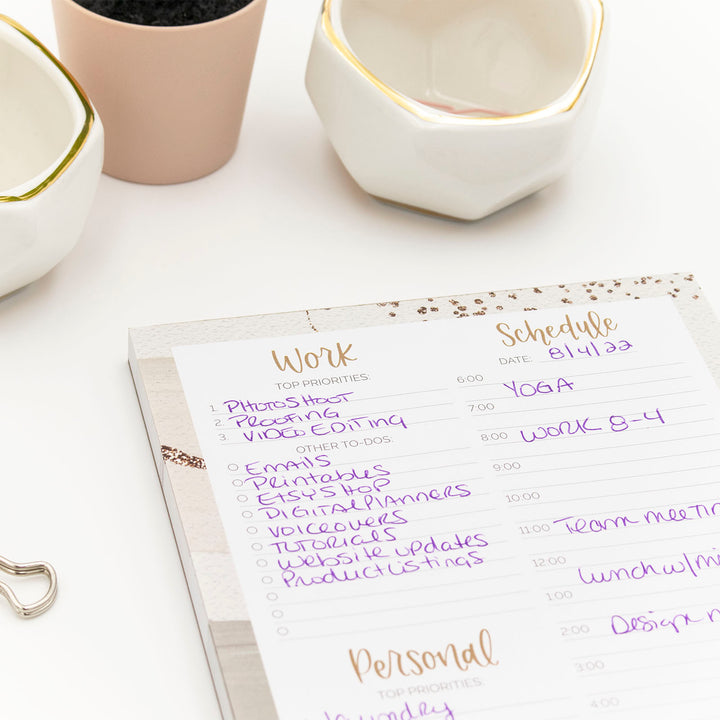 Work
TOP PRIORITIES:
1. PHOTOSHOOT
2. PROOFING
3. VIDEO EDITING
OTHER TO-DOS:
EMAILS
Printables
ETSY SHOP
DIGITAL PLANNERS
VOICEOVERS
TUTORIALS
Website updates
Product listings
Personal
TOP PRIORITIES:
Laundry
Schedule
DATE: 8/4/22
6:00
YOGA
7:00
8:00 WORK 8-4
9:00
10:00
11:00 Team meetin
12:00
Lunch w/
1:00
2:00 Design
3:00
4:00